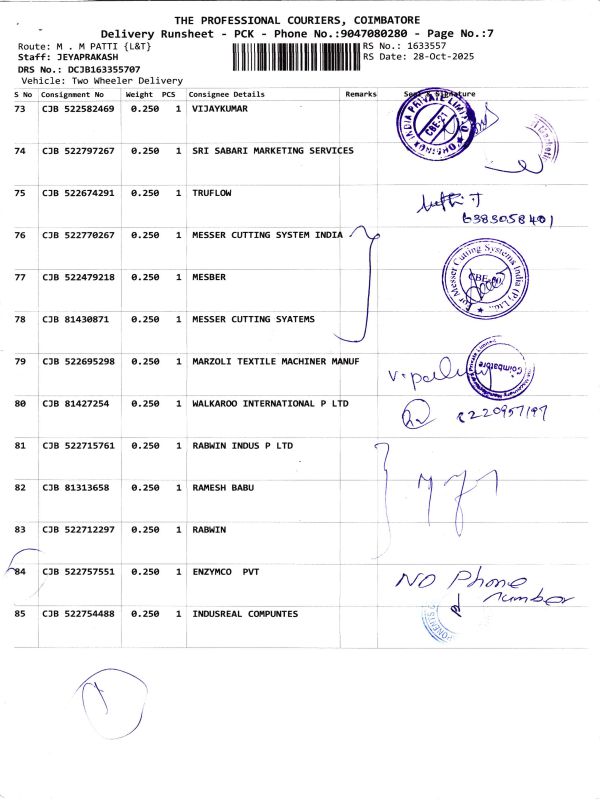 THE PROFESSIONAL COURIERS, COIMBATORE
Delivery Runsheet - PCK - Phone No.:9047080280 - Page No.:7
Route: M . M PATTI {L&T}
RS No.: 1633557
Staff: JEYAPRAKASH
RS Date: 28-Oct-2025
DRS No.: DCJB163355707
Vehicle: Two Wheeler Delivery
S No Consignment No Weight PCS Consignee Details Remarks Seal & Signature
73 CJB 522582469 0.250 1 VIJAYKUMAR
INDIA PRIVATE LIMITED CBE-21
74 CJB 522797267 0.250 1 SRI SABARI MARKETING SERVICES
75 CJB 522674291 0.250 1 TRUFLOW
6383058401
76 CJB 522770267 0.250 1 MESSER CUTTING SYSTEM INDIA
77 CJB 522479218 0.250 1 MESBER
for Messer Cutting Systems India (P) Ltd.,
78 CJB 81430871 0.250 1 MESSER CUTTING SYATEMS
79 CJB 522695298 0.250 1 MARZOLI TEXTILE MACHINER MANUF
Coimbatore
80 CJB 81427254 0.250 1 WALKAROO INTERNATIONAL P LTD
81 CJB 522715761 0.250 1 RABWIN INDUS P LTD
82 CJB 81313658 0.250 1 RAMESH BABU
83 CJB 522712297 0.250 1 RABWIN
84 CJB 522757551 0.250 1 ENZYMCO PVT
NO Phone
number
85 CJB 522754488 0.250 1 INDUSREAL COMPUNTES